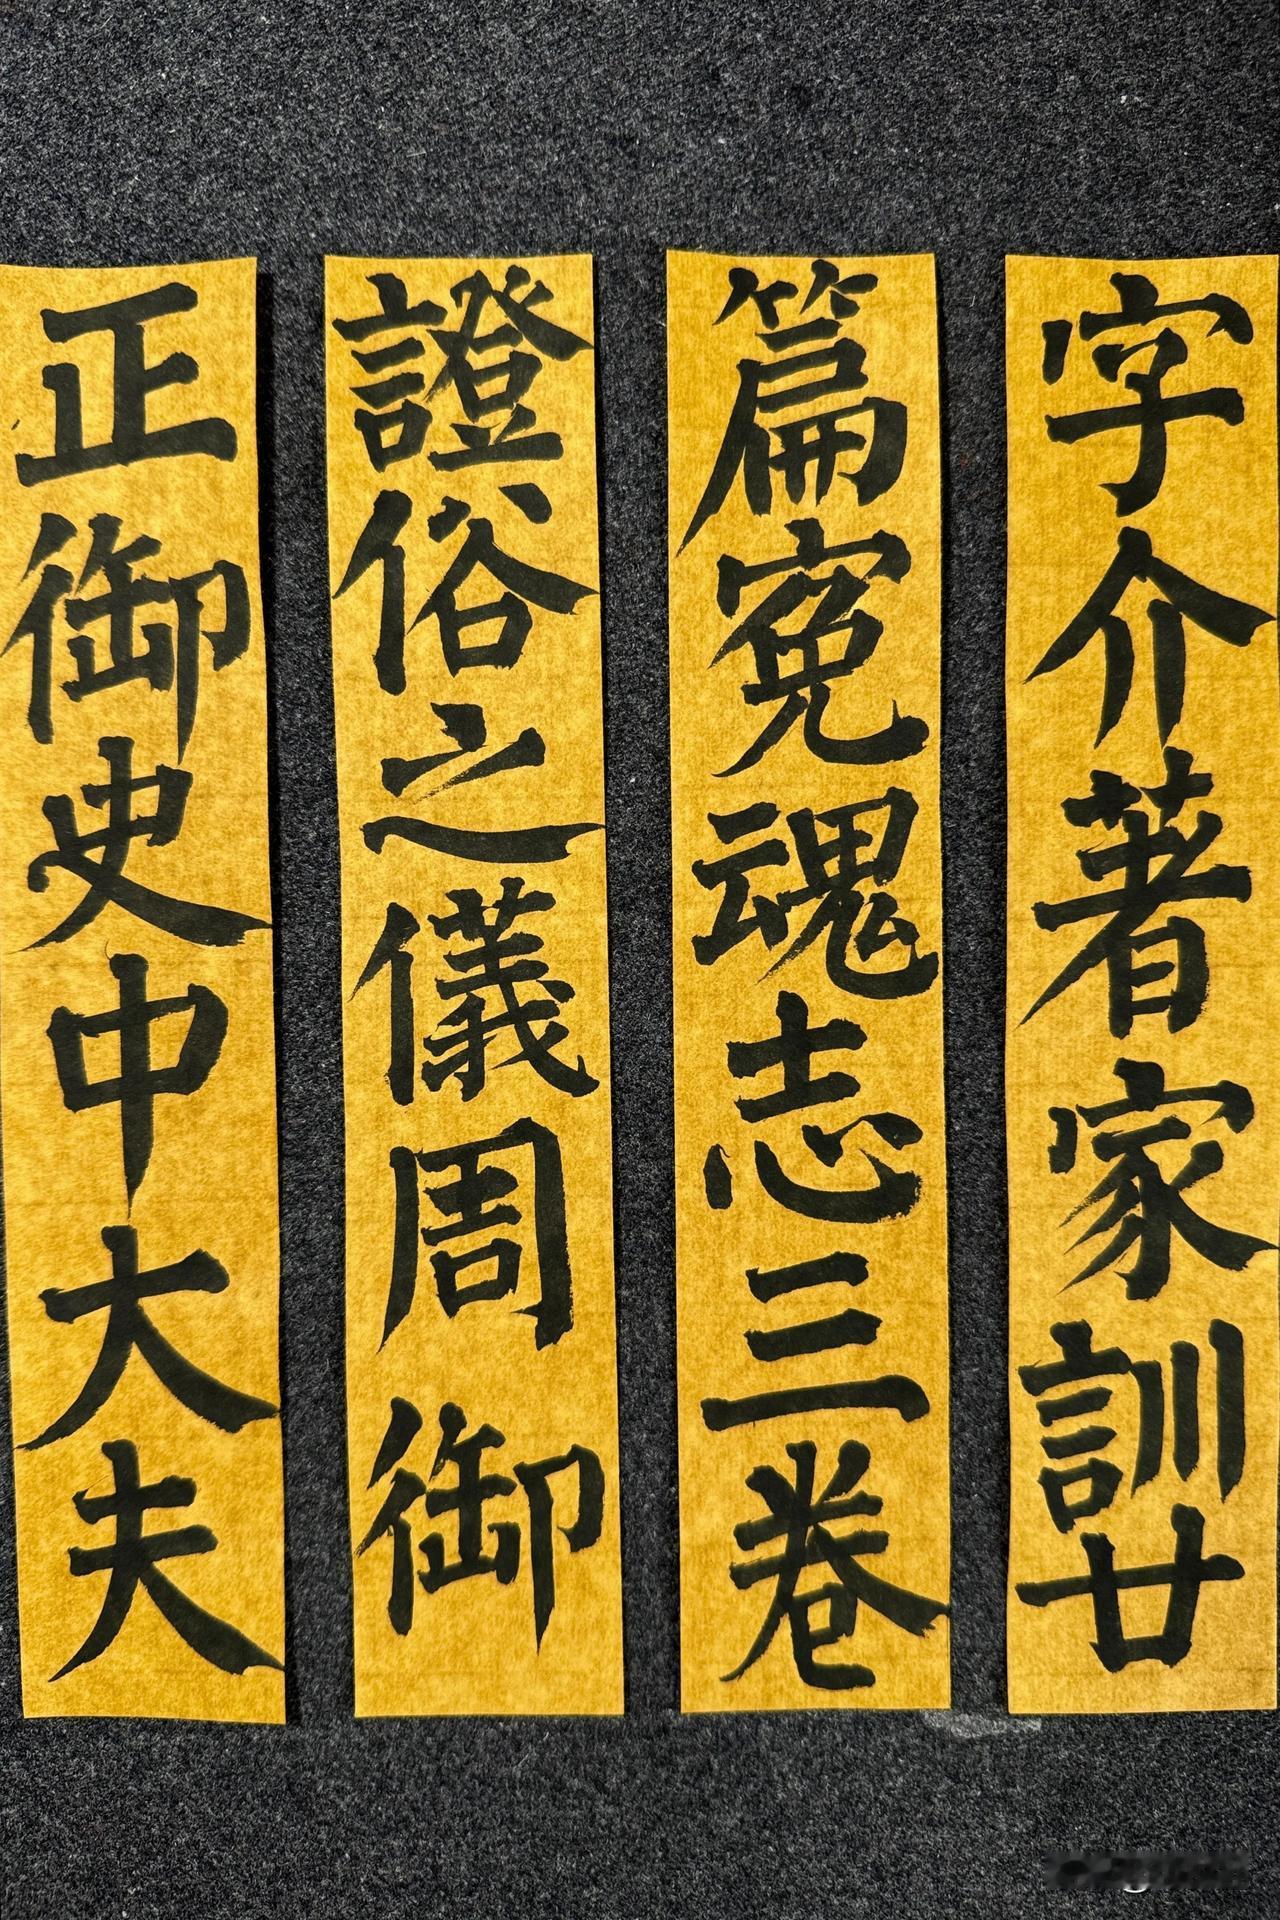 字介著家訓廿
篇冤魂志三卷
證俗之儀周御
正御史中大夫